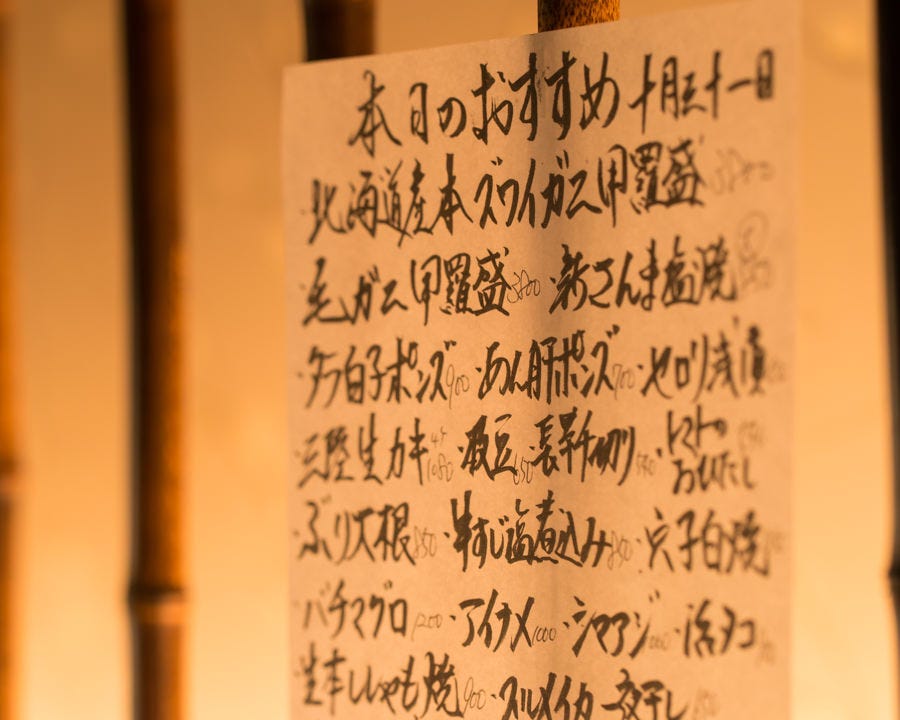 本日のおすすめ 十月三十一日
・北海道産本ズワイガニ甲羅盛
・毛ガニ甲羅盛 3800 ・新さんま塩焼
・タラ白子ポンズ 900 ・あん肝ポンズ 700 ・セロリ浅漬
・三陸生カキ 1080 ・枝豆 650 ・長芋千切り ・トマトのおひたし
・ぶり大根 850 ・牛すじ塩煮込み 850 ・穴子白焼
・バチマグロ 1200 ・アイナメ 1000 ・シマアジ ・活タコ
・生本ししゃも焼 900 ・スルメイカ一夜干し